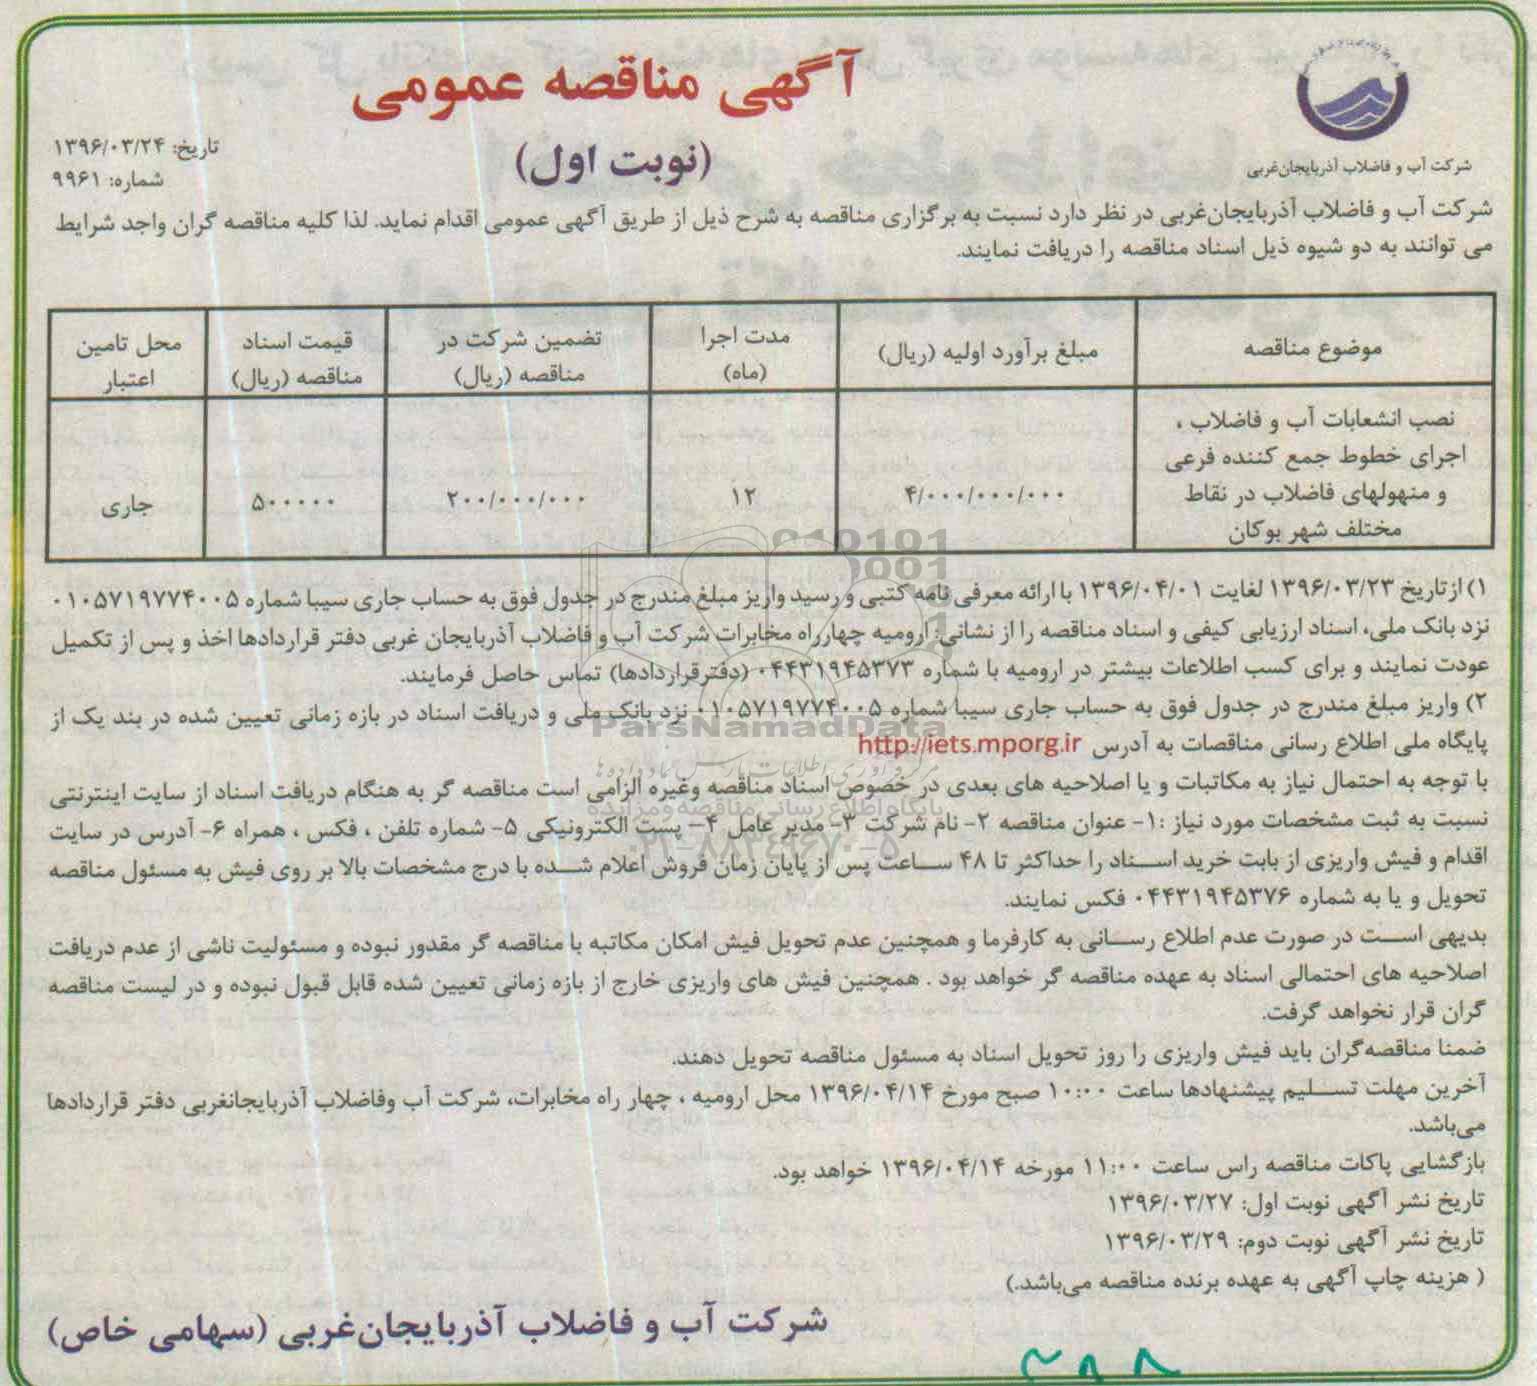 آگهی مناقصه عمومی
(نوبت اول)
تاریخ: ۱۳۹۶/۰۳/۲۴
شماره: ۹۹۶۱
شرکت آب و فاضلاب آذربایجان‌غربی
شرکت آب و فاضلاب آذربایجان‌غربی در نظر دارد نسبت به برگزاری مناقصه به شرح ذیل از طریق آگهی عمومی اقدام نماید. لذا کلیه مناقصه گران واجد شرایط
می توانند به دو شیوه ذیل اسناد مناقصه را دریافت نمایند.
موضوع مناقصه
مبلغ برآورد اولیه (ریال)
مدت اجرا
(ماه)
تضمین شرکت در
مناقصه (ریال)
قیمت اسناد
مناقصه (ریال)
محل تامین
اعتبار
نصب انشعابات آب و فاضلاب ،
اجرای خطوط جمع کننده فرعی
و منهولهای فاضلاب در نقاط
مختلف شهر بوکان
۴/۰۰۰/۰۰۰/۰۰۰
۱۲
۲۰۰/۰۰۰/۰۰۰
۵۰۰۰۰۰
جاری
۱) از تاریخ ۱۳۹۶/۰۳/۲۳ لغایت ۱۳۹۶/۰۴/۰۱ با ارائه معرفی نامه کتبی و رسید واریز مبلغ مندرج در جدول فوق به حساب جاری سیبا شماره ۰۱۰۵۷۱۹۷۷۴۰۰۵
نزد بانک ملی، اسناد ارزیابی کیفی و اسناد مناقصه را از نشانی: ارومیه چهارراه مخابرات شرکت آب و فاضلاب آذربایجان غربی دفتر قراردادها اخذ و پس از تکمیل
عودت نمایند و برای کسب اطلاعات بیشتر در ارومیه با شماره ۰۴۴۳۱۹۴۵۳۷۳ (دفترقراردادها) تماس حاصل فرمایند.
۲) واریز مبلغ مندرج در جدول فوق به حساب جاری سیبا شماره ۰۱۰۵۷۱۹۷۷۴۰۰۵ نزد بانک ملی و دریافت اسناد در بازه زمانی تعیین شده در بند یک از
پایگاه ملی اطلاع رسانی مناقصات به آدرس http://iets.mporg.ir
با توجه به احتمال نیاز به مکاتبات و یا اصلاحیه های بعدی در خصوص اسناد مناقصه وغیره الزامی است مناقصه گر به هنگام دریافت اسناد از سایت اینترنتی
نسبت به ثبت مشخصات مورد نیاز :۱- عنوان مناقصه ۲- نام شرکت ۳- مدیر عامل ۴- پست الکترونیکی ۵- شماره تلفن ، فکس ، همراه ۶- آدرس در سایت
اقدام و فیش واریزی از بابت خرید اسناد را حداکثر تا ۴۸ ساعت پس از پایان زمان فروش اعلام شده با درج مشخصات بالا بر روی فیش به مسئول مناقصه
تحویل و یا به شماره ۰۴۴۳۱۹۴۵۳۷۶ فکس نمایند.
بدیهی است در صورت عدم اطلاع رسانی به کارفرما و همچنین عدم تحویل فیش امکان مکاتبه با مناقصه گر مقدور نبوده و مسئولیت ناشی از عدم دریافت
اصلاحیه های احتمالی اسناد به عهده مناقصه گر خواهد بود . همچنین فیش های واریزی خارج از بازه زمانی تعیین شده قابل قبول نبوده و در لیست مناقصه
گران قرار نخواهد گرفت.
ضمنا مناقصه‌گران باید فیش واریزی را روز تحویل اسناد به مسئول مناقصه تحویل دهند.
آخرین مهلت تسلیم پیشنهادها ساعت ۱۰:۰۰ صبح مورخ ۱۳۹۶/۰۴/۱۴ محل ارومیه ، چهار راه مخابرات، شرکت آب وفاضلاب آذربایجانغربی دفتر قراردادها
می‌باشد.
بازگشایی پاکات مناقصه راس ساعت ۱۱:۰۰ مورخه ۱۳۹۶/۰۴/۱۴ خواهد بود.
تاریخ نشر آگهی نوبت اول: ۱۳۹۶/۰۳/۲۷
تاریخ نشر آگهی نوبت دوم: ۱۳۹۶/۰۳/۲۹
( هزینه چاپ آگهی به عهده برنده مناقصه می‌باشد.)
شرکت آب و فاضلاب آذربایجان‌غربی (سهامی خاص)
ParsNamadData
پایگاه اطلاع رسانی مناقصه و مزایده
۰۲۱-۸۸۳۴۹۶۷۰-۵